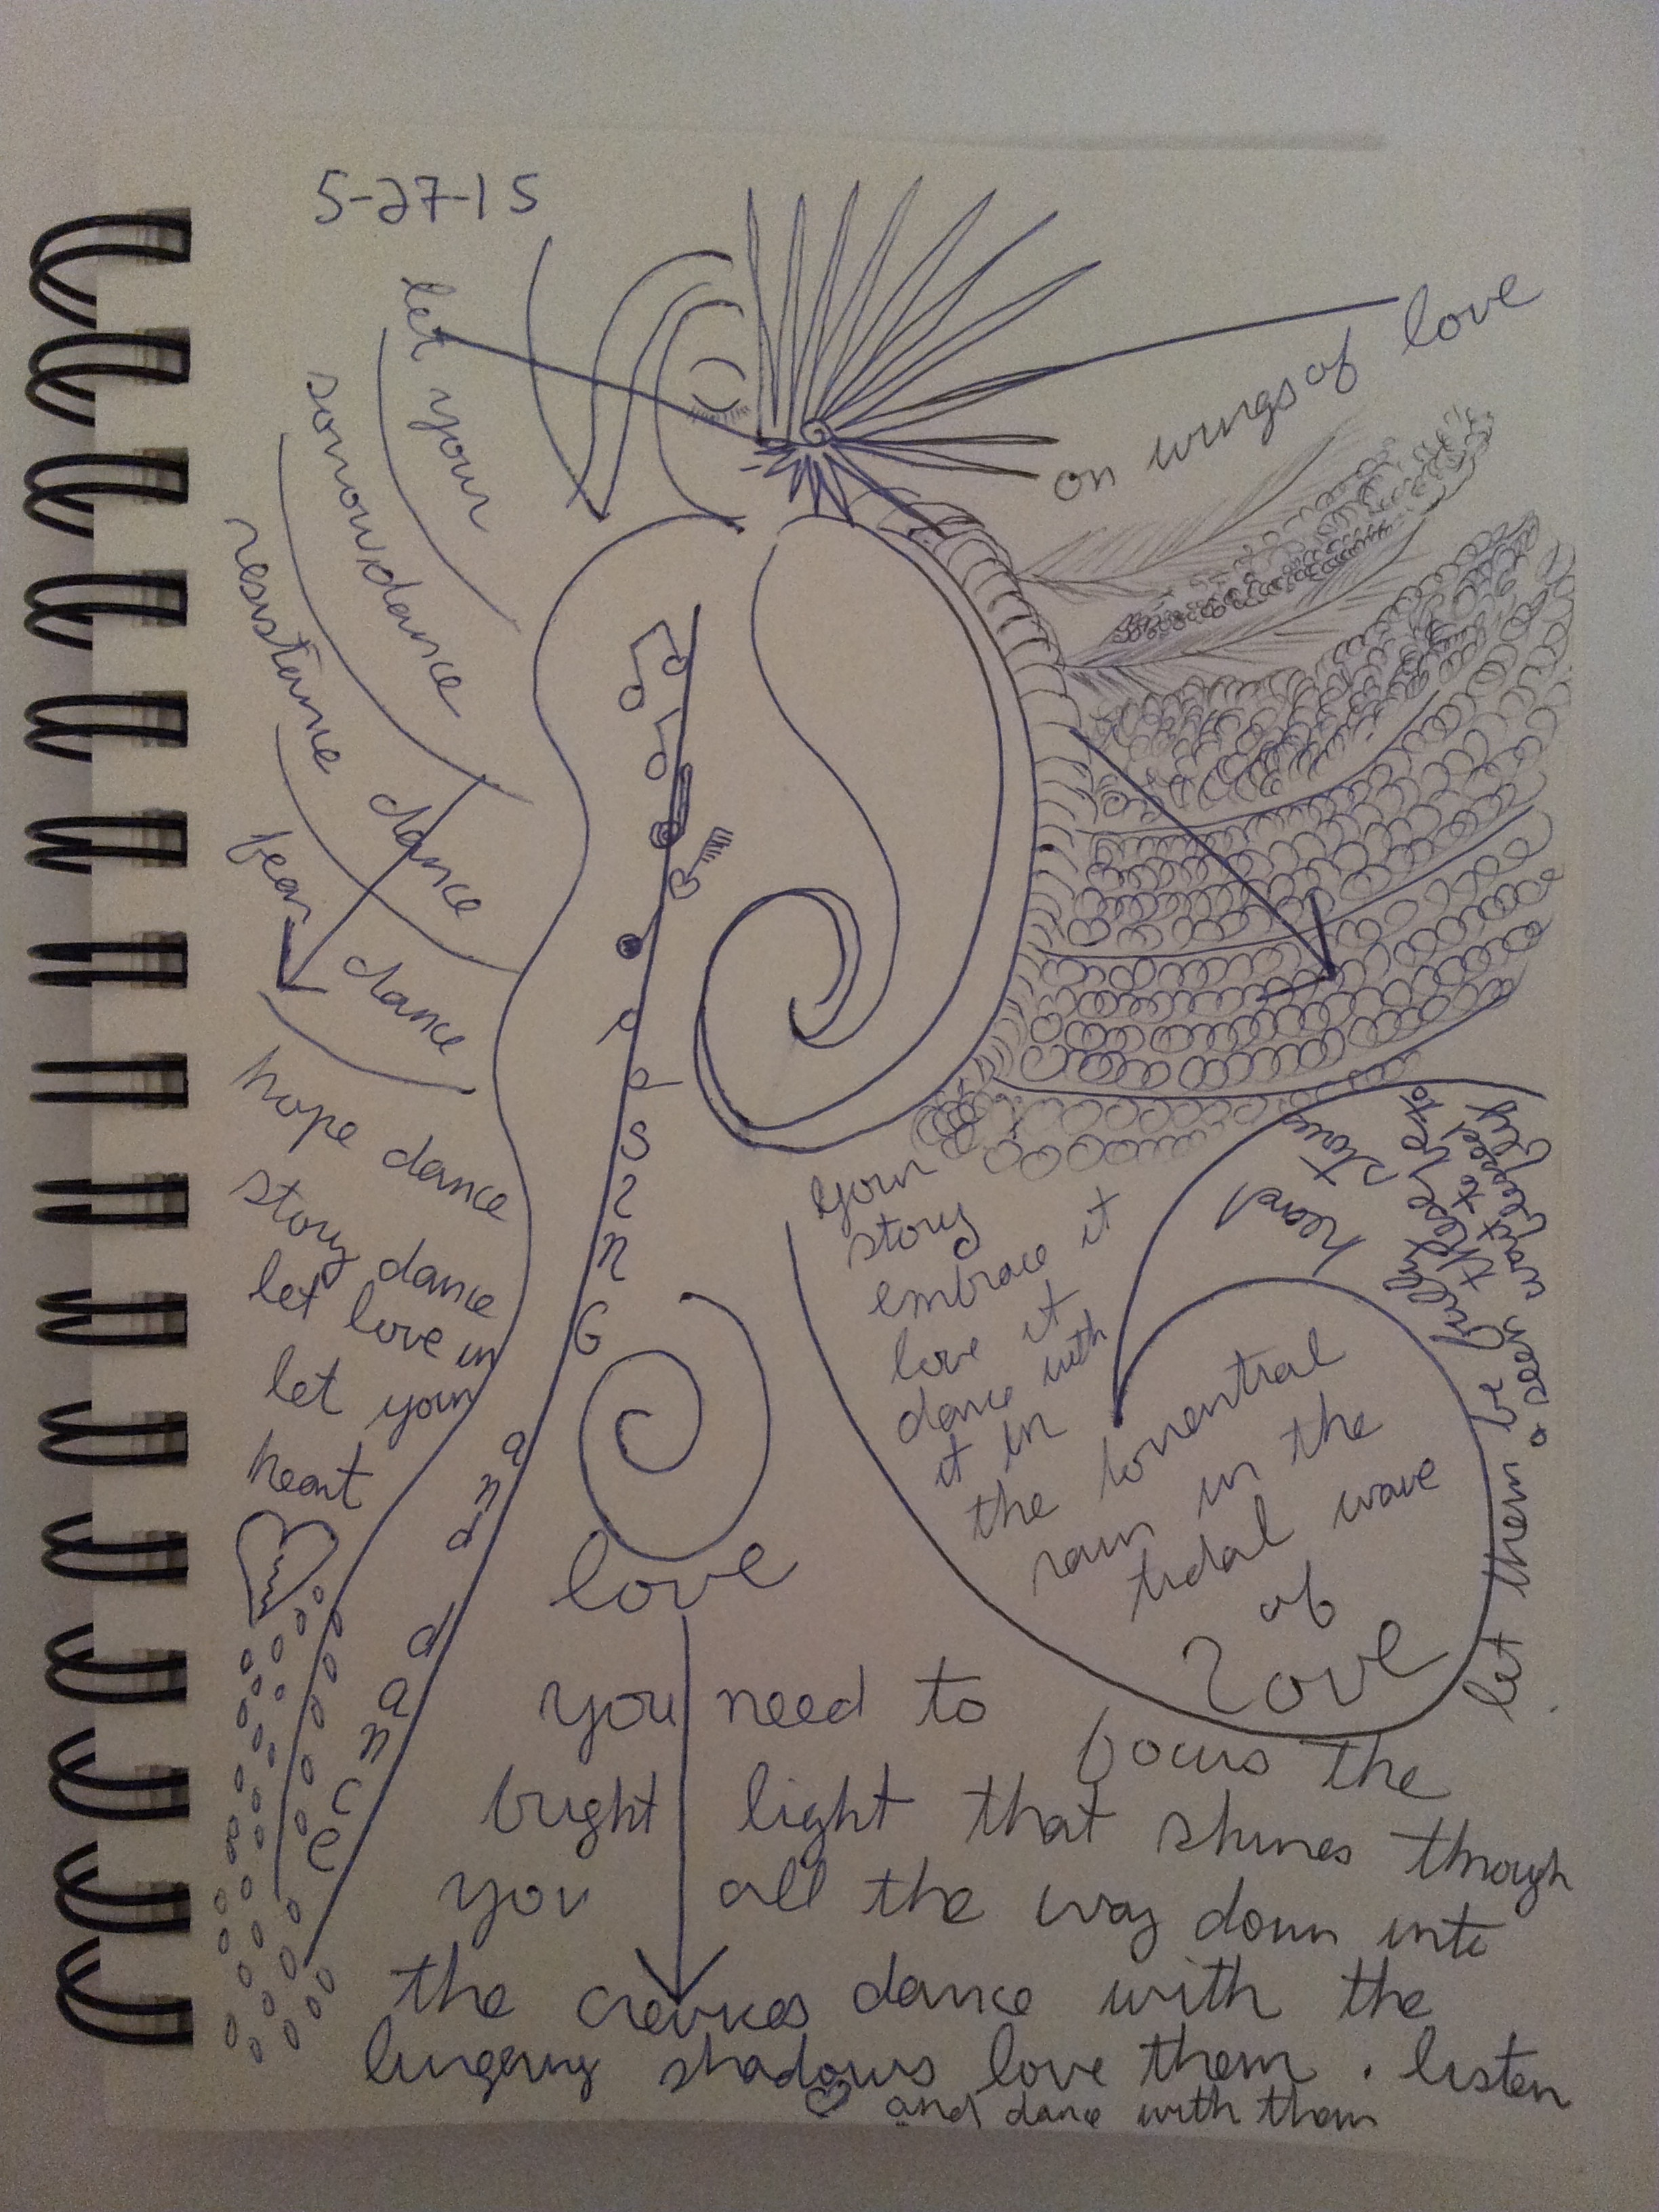 5-27-15
let your
sorrow dance
resistance dance
fear dance
hope dance
story dance
let love in
let your
heart
SING
and
dance
love
on wings of love
your
story
embrace it
love it
dance with
it in
the torrential
rain in the
tidal wave
of
Love
hear
let them be fully
a deep
you need to focus the
bright light that shines through
you all the way down into
the crevices dance with the
lingering shadows love them. listen
and dance with them